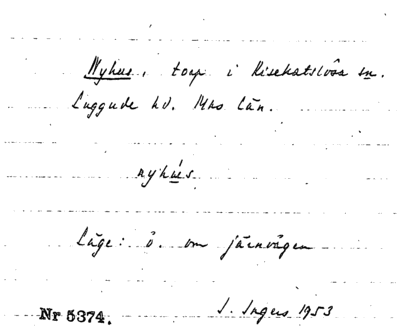 Nyhus, torp i Risekatslösa sn.
Luggude hd. Mhs län.
nyhús
Läge: ö. om järnvägen
Nr 5374. I. Ingers 1953